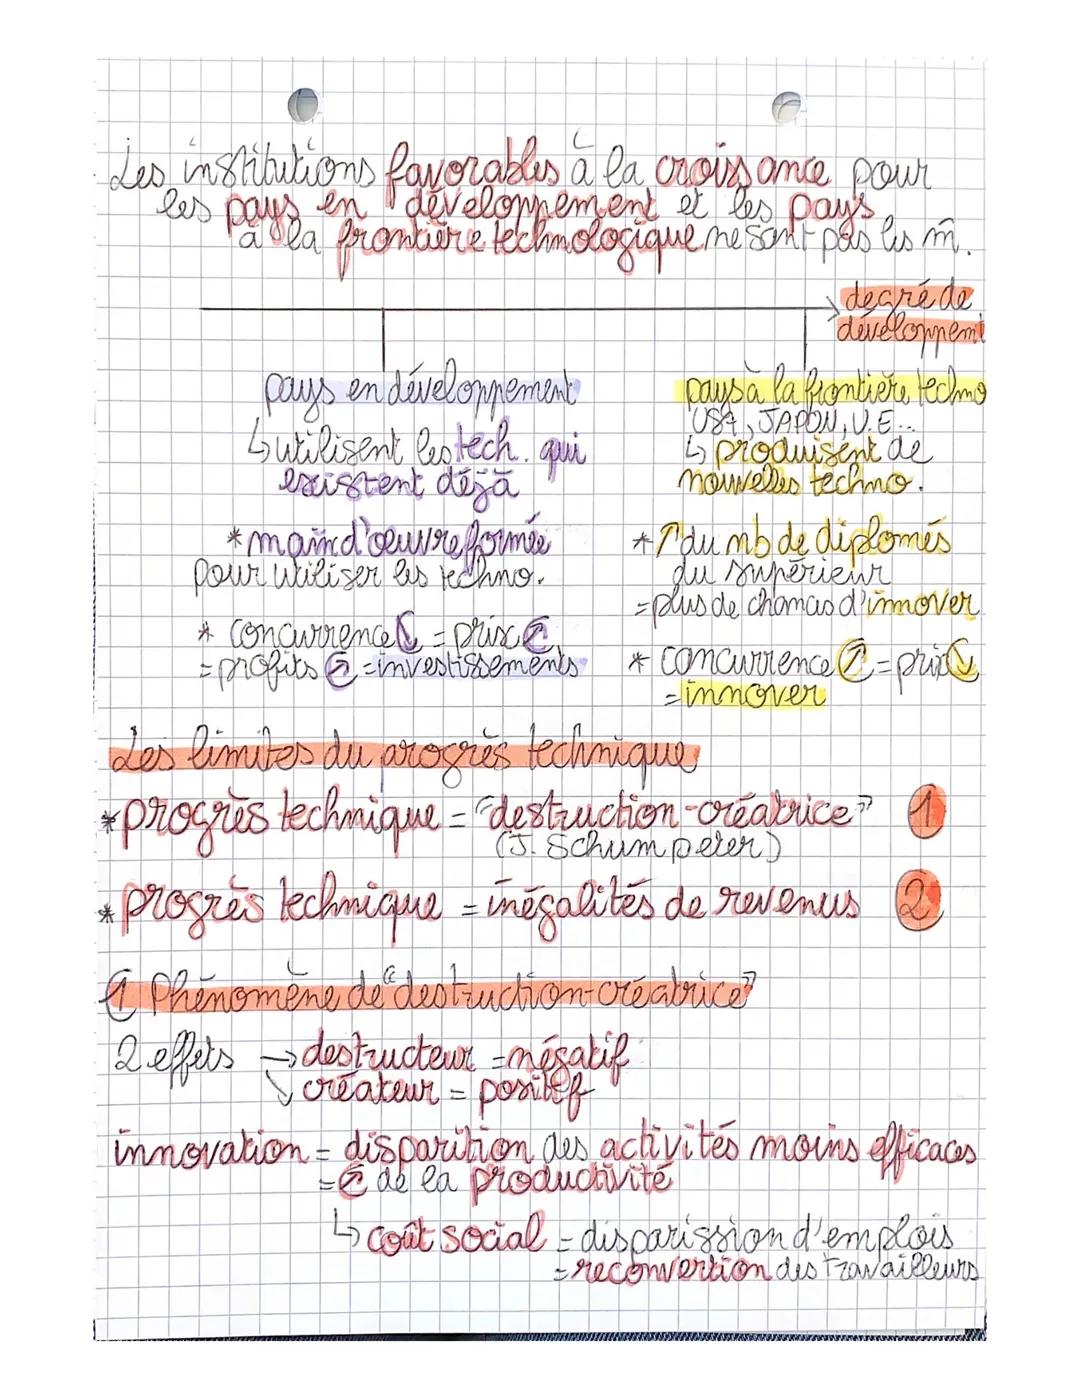 Les institutions favorables à la croissance pour
les pays en développement et les pays
à la frontière technologique ne sont pas les m̂.
degré de
développemt
pays en développement
↳ utilisent les tech. qui
existent déjà
* main d'oeuvre formée
pour utiliser les techno.
* concurrence ↘ = prix ↗
= profits ↗ = investissements
pays à la frontière techno
USA, JAPON, U.E...
↳ produisent de
nouvelles techno.
* ↗ du nb de diplomés
du supérieur
= plus de chances d'innover
* concurrence ↗ = prix ↘
= innover
Les limites du progrès technique
* progrès technique = "destruction-créatrice" 1
(J. Schumpeter)
* progrès technique = inégalités de revenus 2
1 Phénomène de "destruction-créatrice"
2 effets → destructeur = négatif
↘ créateur = positif
innovation = disparition des activités moins efficaces
= ↗ de la productivité
↳ coût social = disparission d'emplois
= reconvertion des travailleurs